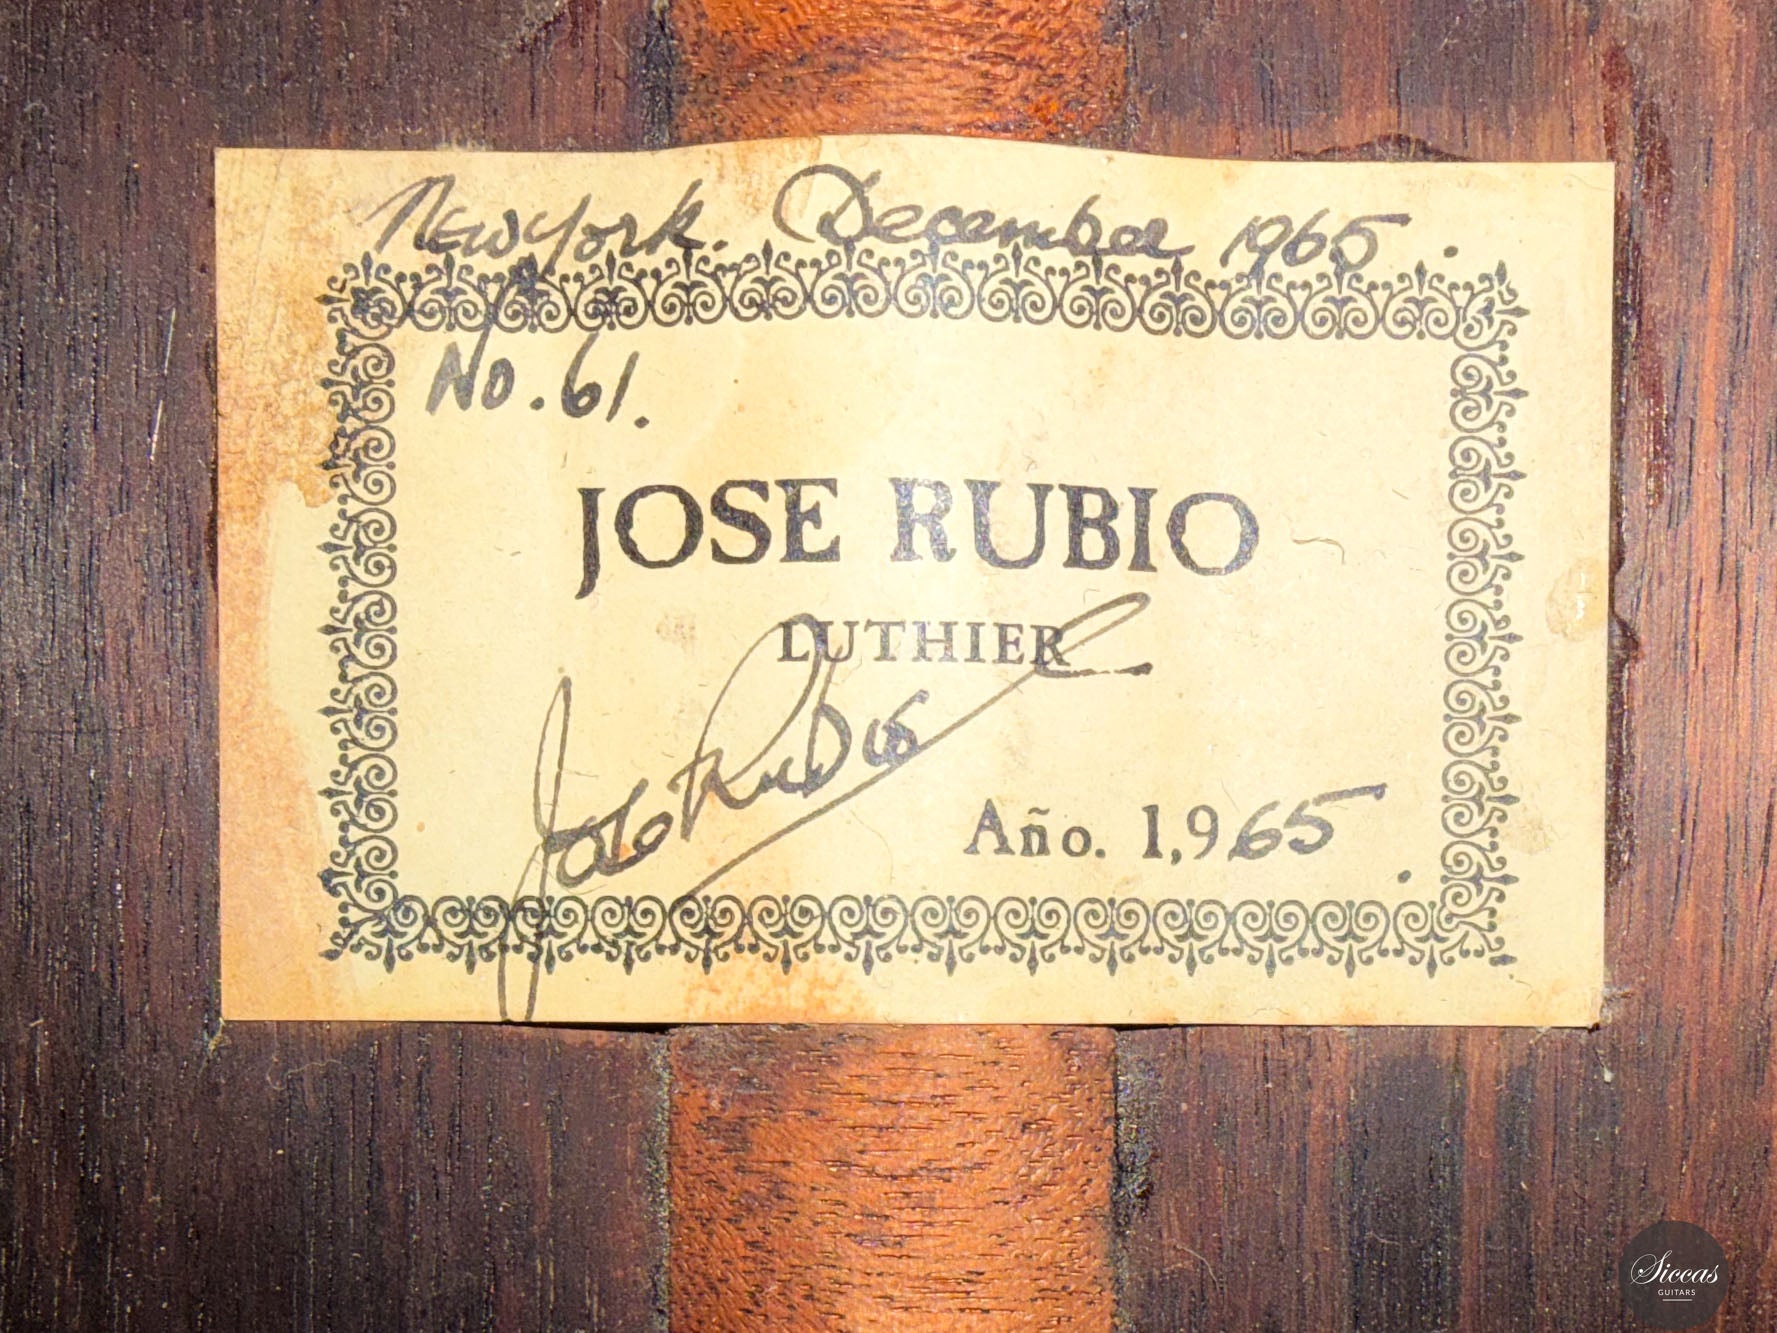 New York. December 1965.
No. 61.
JOSE RUBIO
LUTHIER
Jose Rubio
Año. 1,965.
Siccas
GUITARS